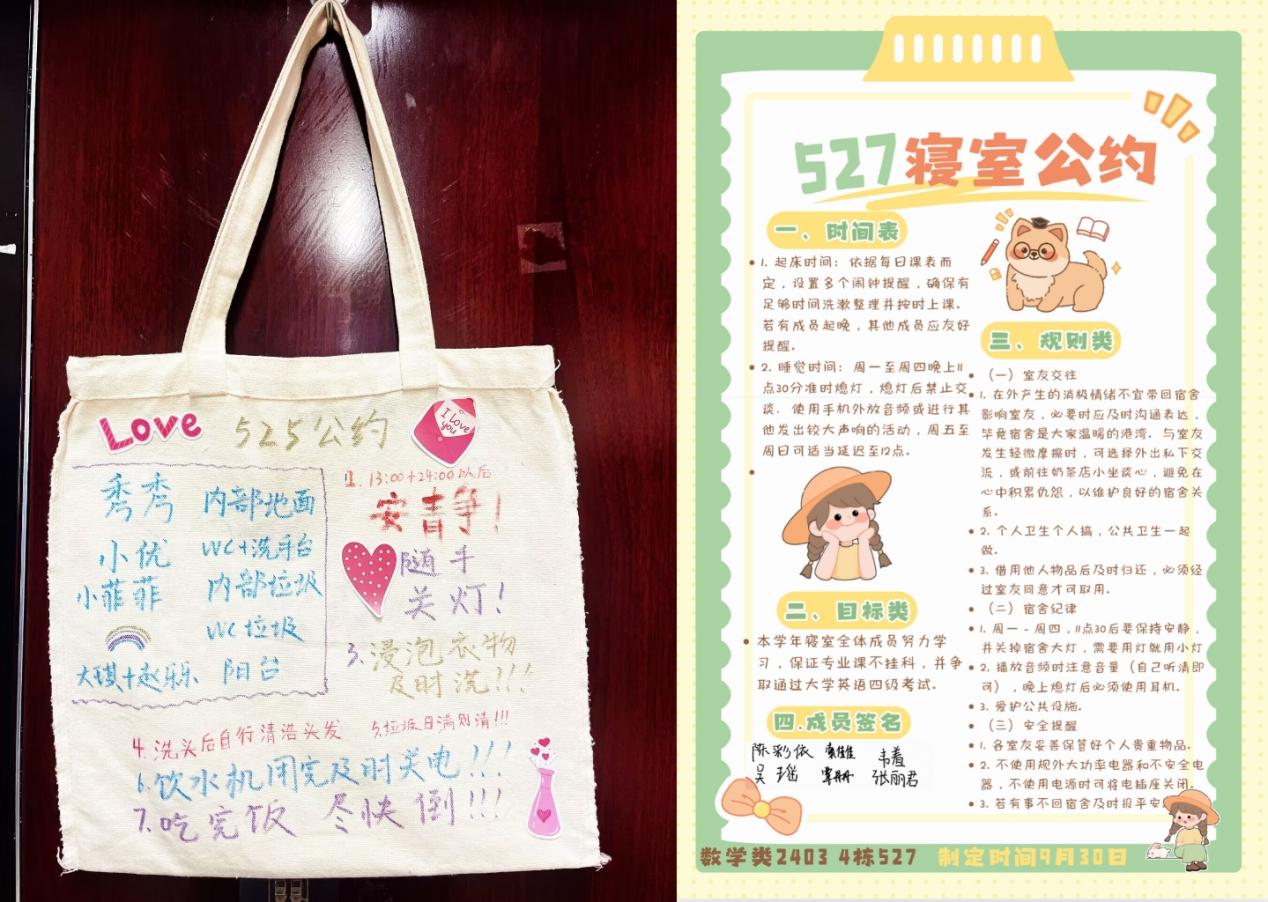 Love
525公约
I love you
秀秀 内部地面
小优 WC+洗手台
小菲菲 内部垃圾
WC垃圾
大琪+赵乐乐 阳台
1. 13:00+24:00以后
安青争!
随手
关灯!
3.浸泡衣物
及时洗!!!
4.洗头后自行清浴头发 5.垃圾日满则清!!!
6.饮水机闭完及时关电!!!
7.吃完饭 尽快倒!!!
527寝室公约
一、时间表
1. 起床时间：依据每日课表而
定，设置多个闹钟提醒，确保有
足够时间洗漱整理并按时上课。
若有成员起晚，其他成员应友好
提醒。
2. 睡觉时间：周一至周四晚上11
点30分准时熄灯，熄灯后禁止交
谈、使用手机外放音频或进行其
他发出较大声响的活动，周五至
周日可适当延迟至12点。
二、目标类
本学年寝室全体成员努力学
习，保证专业课不挂科，并争
取通过大学英语四级考试。
四.成员签名
陈彩依 韦着
吴瑶 覃丹 张丽君
三、规则类
（一）室友交往
1. 在外产生的消极情绪不宜带回宿舍
影响室友，必要时应及时沟通表达，
毕竟宿舍是大家温暖的港湾。与室友
发生轻微摩擦时，可选择外出私下交
流，或前往奶茶店小坐谈心，避免在
心中积累仇怨，以维护良好的宿舍关
系。
2. 个人卫生个人搞，公共卫生一起
做。
3. 借用他人物品后及时归还，必须经
过室友同意才可取用。
（二）宿舍纪律
1. 周一-周四，11点30后要保持安静，
并关掉宿舍大灯，需要用灯就用小灯
2. 播放音频时注意音量（自己听清即
可），晚上熄灯后必须使用耳机。
3. 爱护公共设施。
（三）安全提醒
1. 各室友妥善保管好个人贵重物品。
2. 不使用规外大功率电器和不安全电
器，不使用电源时可将电插座关闭。
3. 若有事不回宿舍及时报平安
数学类2403 4栋527 制定时间9月30日